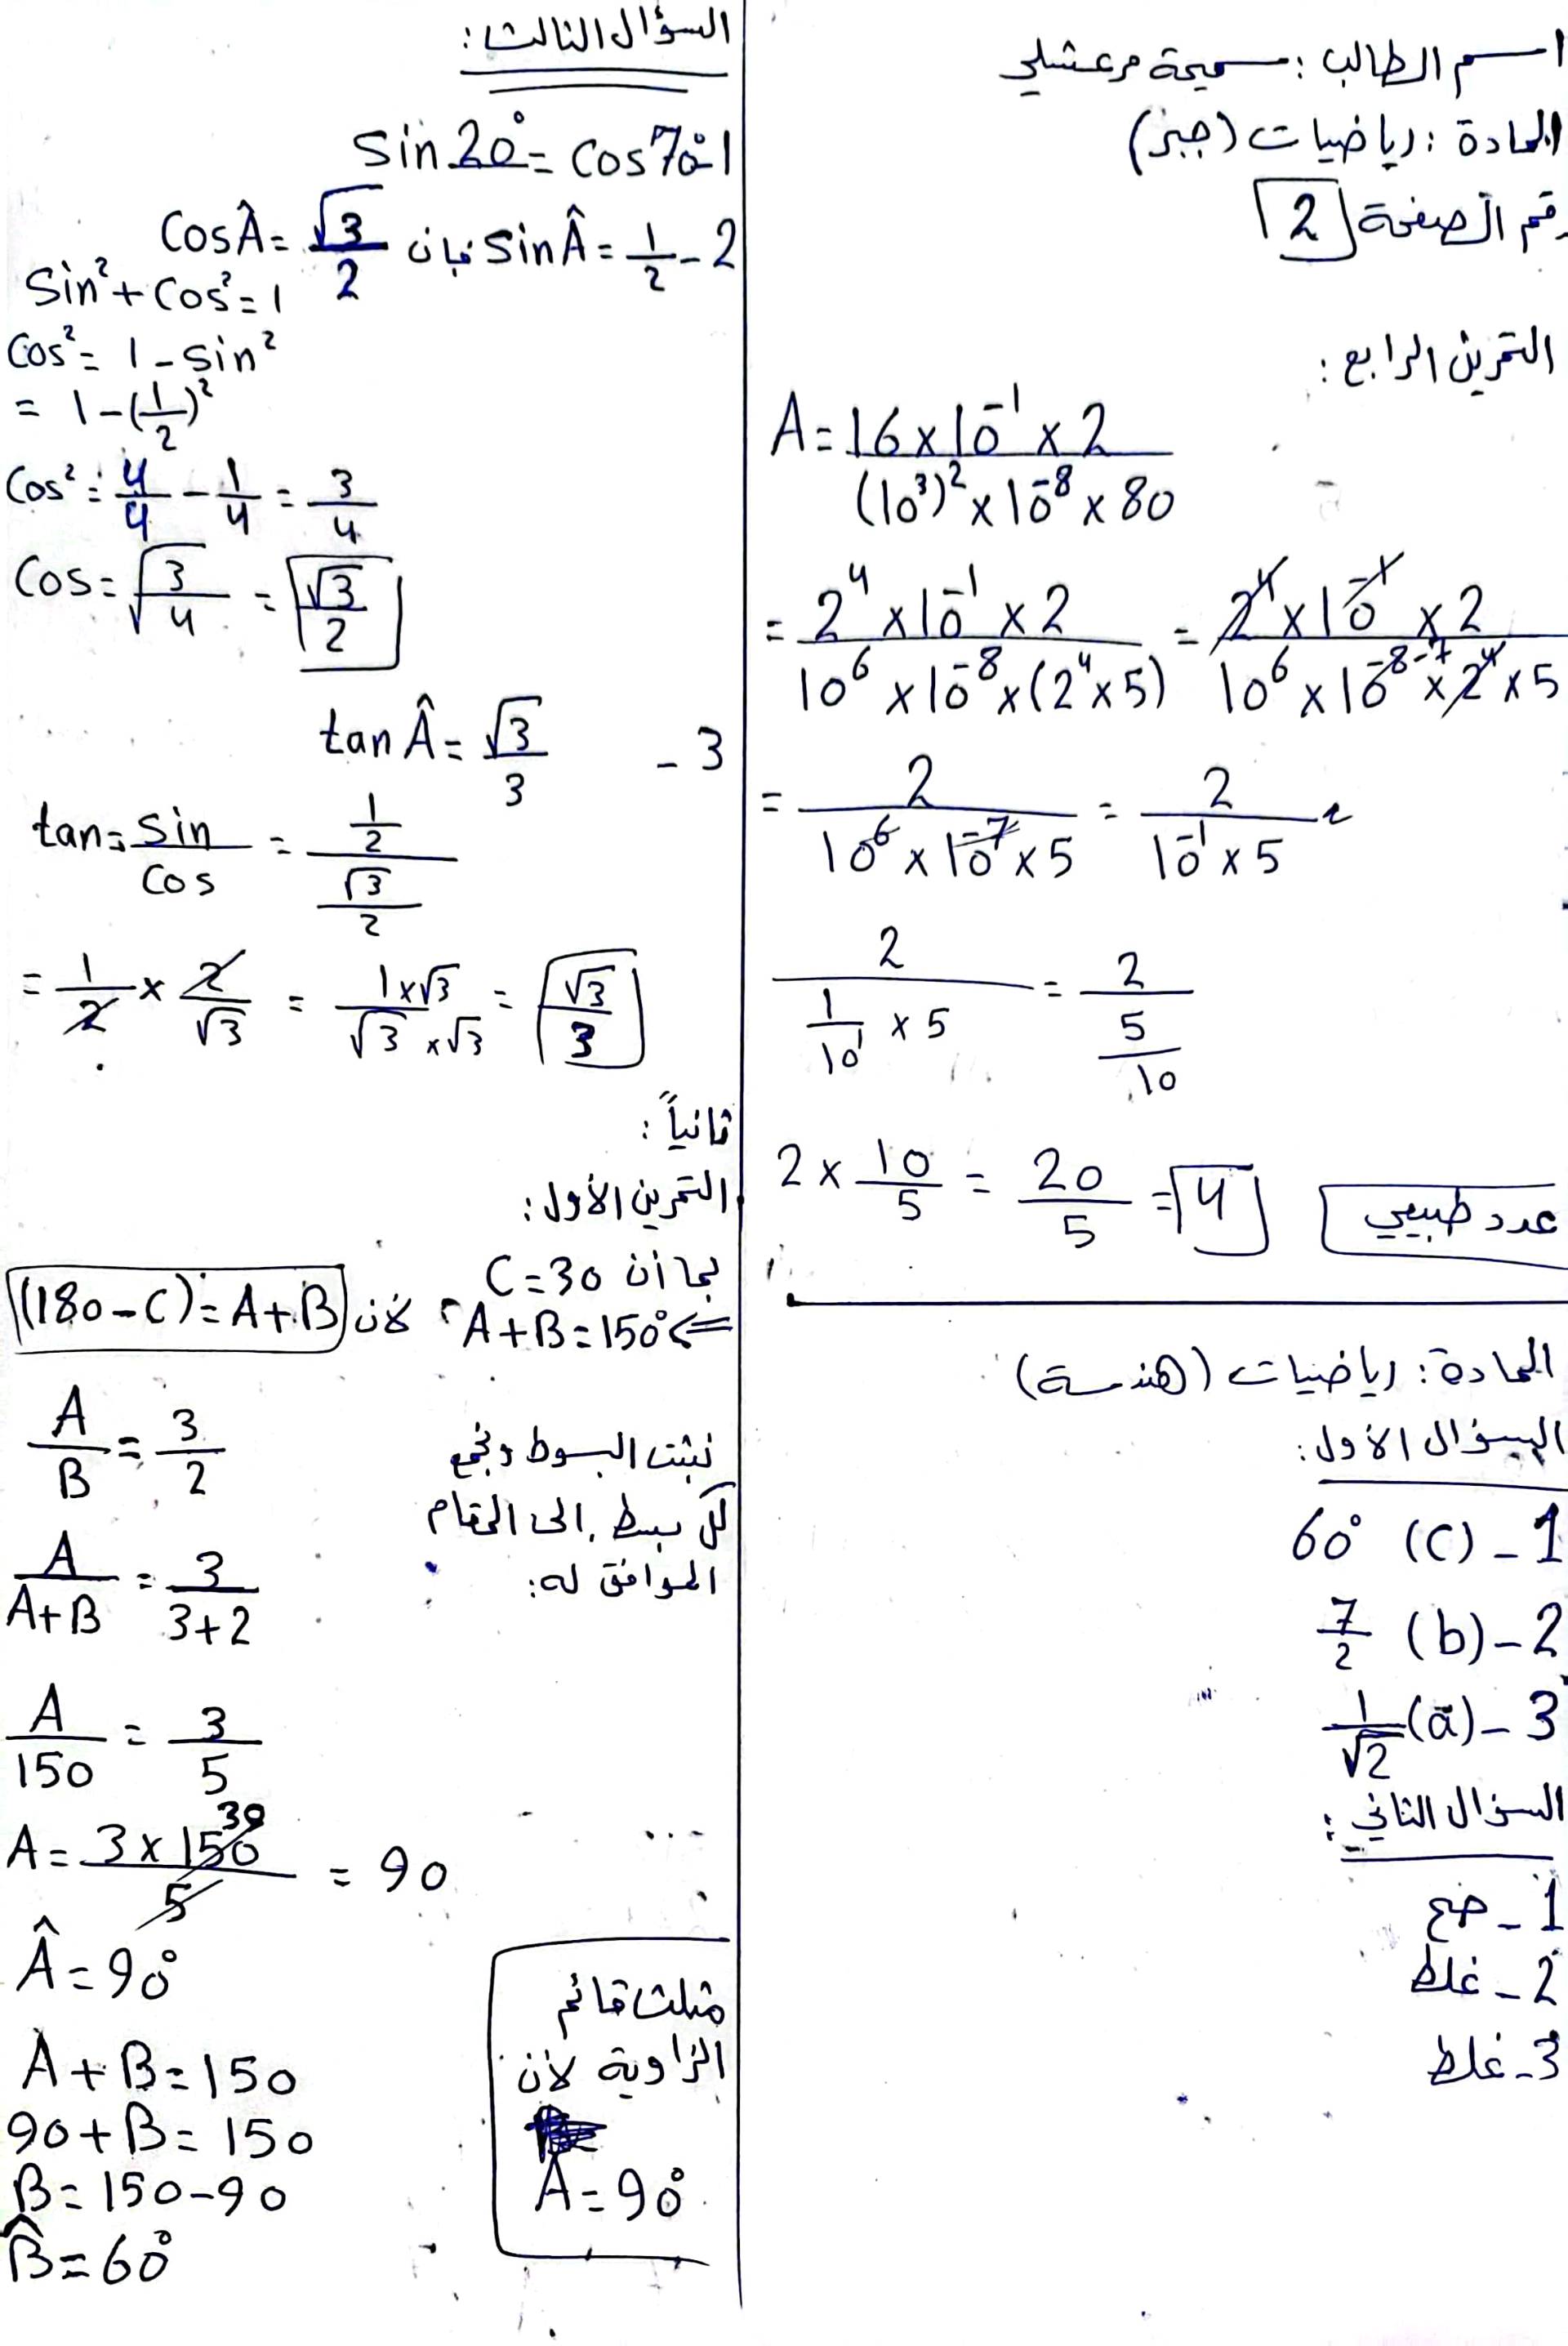 اسم الطالب : سميحة مرعشلي
المادة : رياضيات (جبر)
رقم الصفحة 2
التمرين الرابع :
A = 16 × 10⁻¹ × 2 / (10³)² × 10⁻⁸ × 80
= 2⁴ × 10⁻¹ × 2 / 10⁶ × 10⁻⁸ × (2⁴ × 5) = 2⁴ × 10⁻¹ × 2 / 10⁶ × 10⁻⁸ ⁻⁷ × 2⁴ × 5
= 2 / 10⁶ × 10⁻⁷ × 5 = 2 / 10⁻¹ × 5
2 / 1/10¹ × 5 = 2 / 5/10
2 × 10/5 = 20/5 = 4 عدد طبيعي
المادة : رياضيات (هندسة)
السؤال الأول :
1 - (C) 60°
2 - (b) 7/2
3 - (a) 1/√2
السؤال الثاني :
1 - صح
2 - غلط
3 - غلط
السؤال الثالث :
1 - sin 20° = cos 70°
2 - sin Â = 1/2 فإن cos Â = √3/2
Sin² + Cos² = 1
Cos² = 1 - Sin²
= 1 - (1/2)²
Cos² = 4/4 - 1/4 = 3/4
Cos = √3/4 = √3/2
3 - tan Â = √3/3
tan = Sin/Cos = 1/2 / √3/2
= 1/2 × 2/√3 = 1×√3 / √3×√3 = √3/3
ثانياً :
التمرين الأول :
بما أن C = 30
⇐ A + B = 150° لأن (180 - C) = A + B
A/B = 3/2 نثبت البسوط ونجمع
كل بسط إلى المقام
الموافق له :
A/A+B = 3/3+2
A/150 = 3/5
A = 3 × 150 / 5 = 90
30
Â = 90°
A + B = 150
90 + B = 150
B = 150 - 90
B̂ = 60°
مثلث قائم
الزاوية لأن
A = 90°